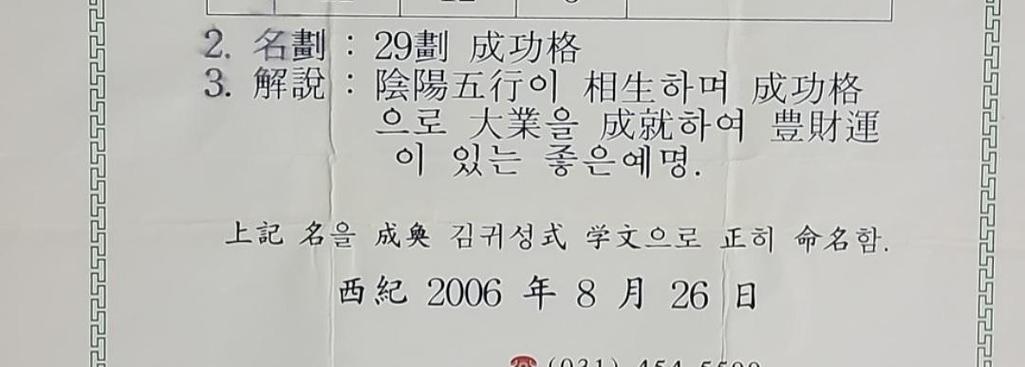 2. 名劃 : 29劃 成功格
3. 解說 : 陰陽五行이 相生하며 成功格
으로 大業을 成就하여 豊財運
이 있는 좋은예명.
上記 名을 成奐 김귀성式 学文으로 正히 命名함.
西紀 2006 年 8 月 26 日
☎ (031)